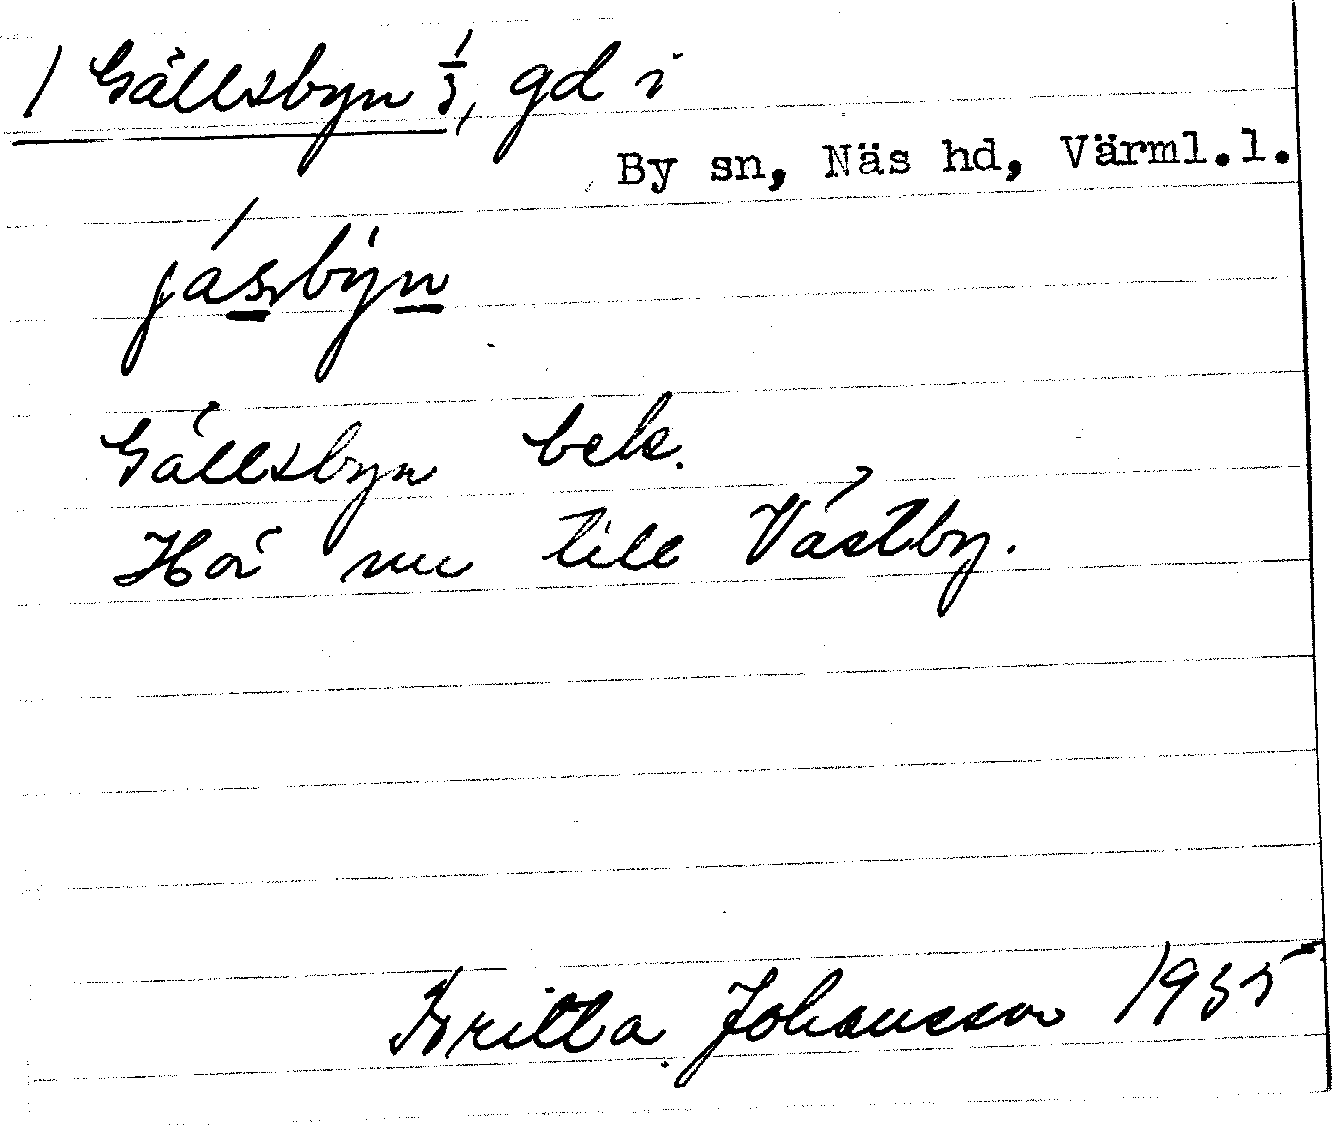 1 Gällsbyn 1/3, gd i
By sn, Näs hd, Värml.l.
jásbýn
Gällsbyn bek.
Hör nu till Västby.
Britta Johansson 1935